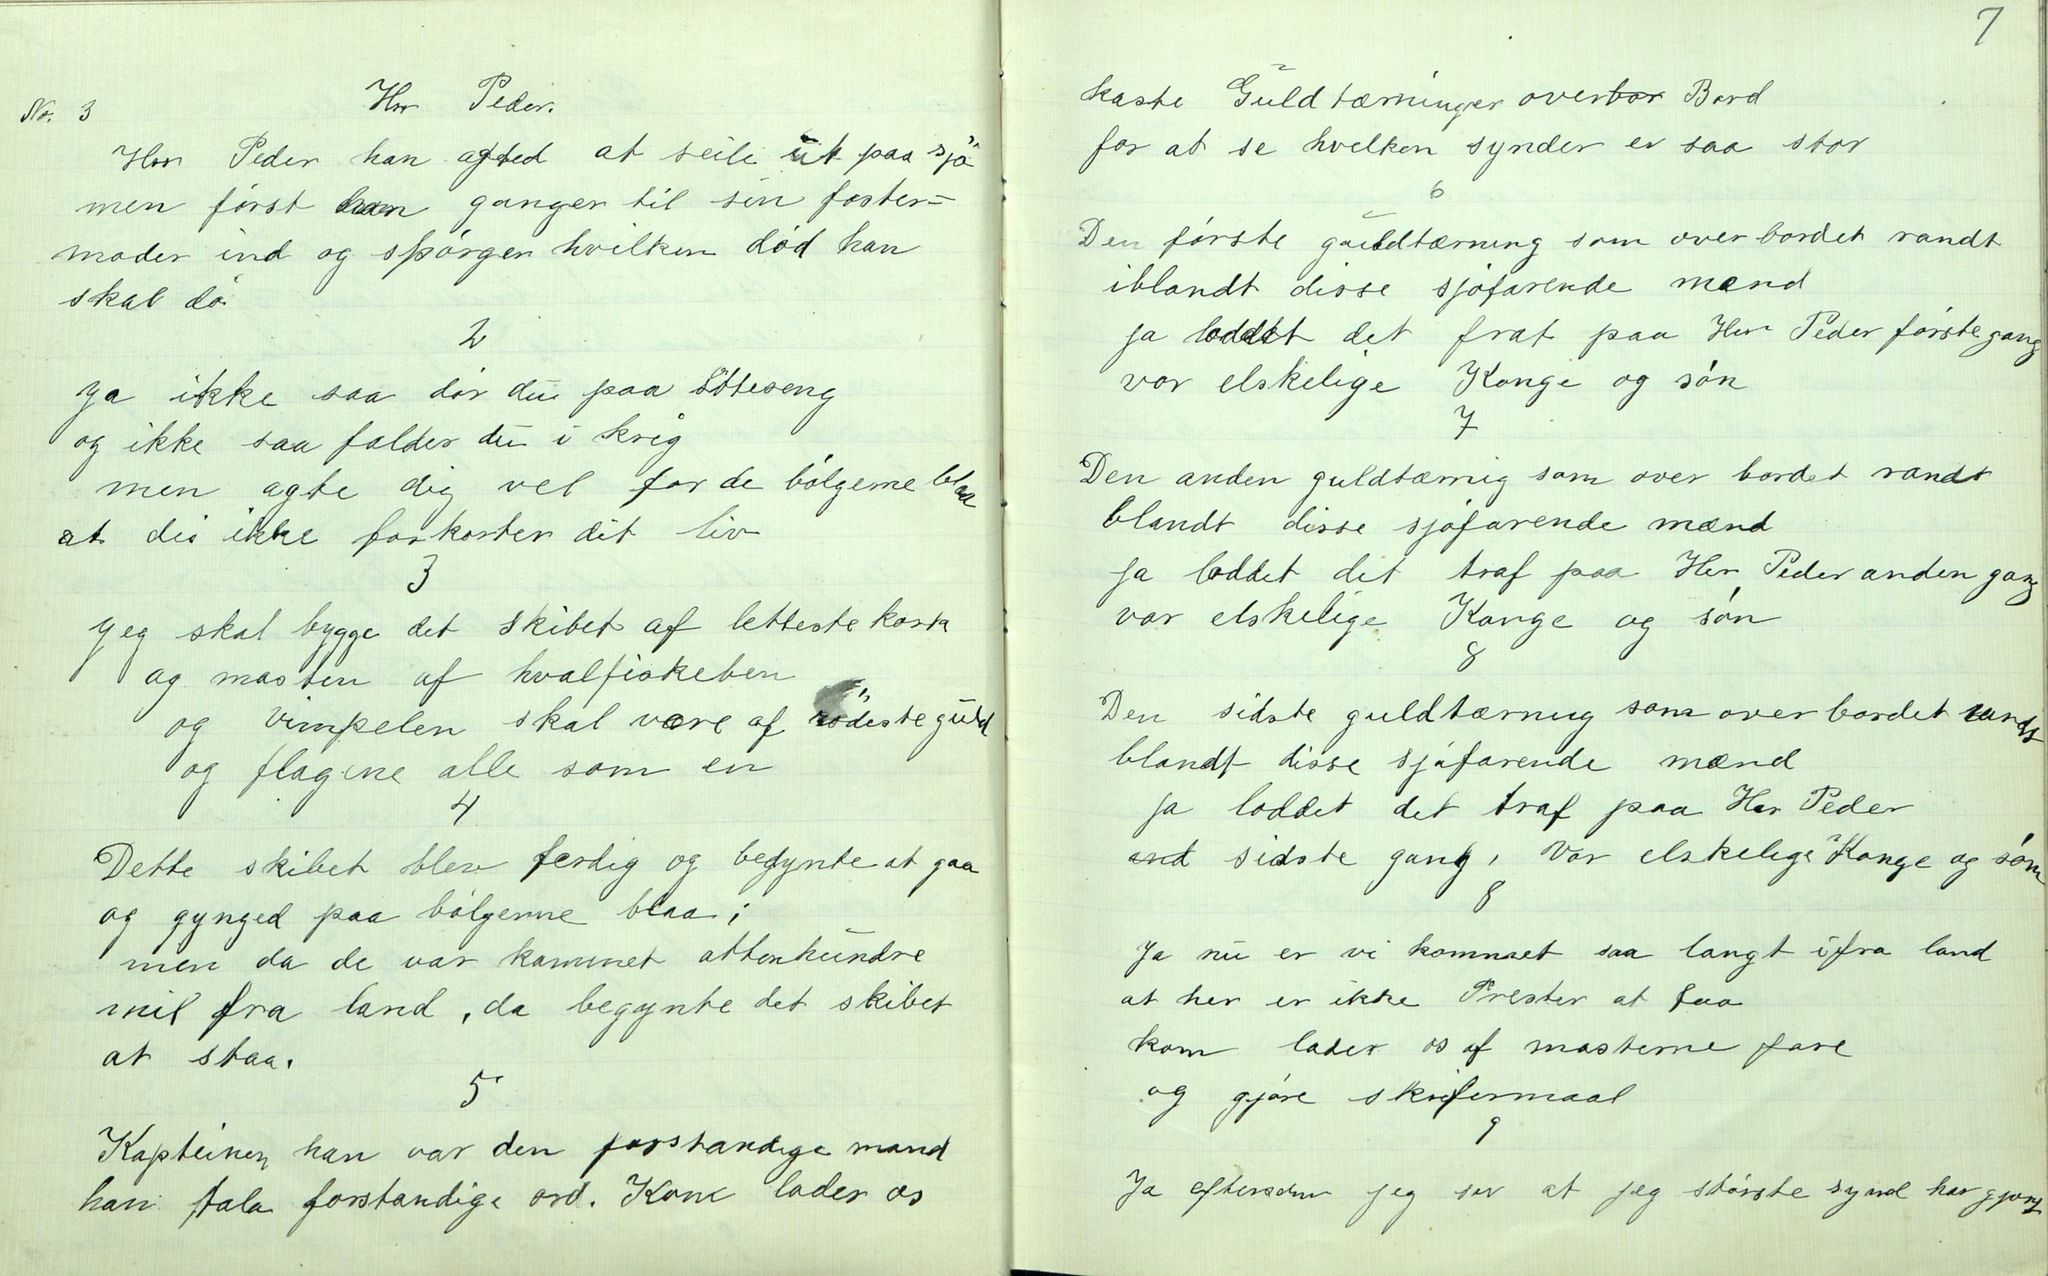 No. 3 Her Peder.
Her Peder han agted at seile ut paa sjø
men først han ganger til sin foster-
moder ind og spørger hvilken død han
skal dø
2
ja ikke saa dør du paa sotteseng
og ikke saa falder du i krig
men agte dig vel for de bølgerne blaa
at die ikke forkorter dit liv
3
jeg skal bygge det skibet af letteste kork
og masten af hvalfiskeben
og vimpelen skal være af rødeste guld
og flagene alle som en
4
Dette skibet blev ferdig og begynte at gaa
og gynged paa bølgerne blaa;
men da de var kommet attenhundre
mil fra land, da begynte det skibet
at staa.
5
Kapteinen han var den forstandige mand
han tala forstandige ord. Kom lader os
7
kaste Guldtærninger overbor Bord
for at se hvelken synder er saa stor
6
Den første guldtærning som over bordet randt
iblandt disse sjøfarende mænd
ja loddet det frat paa Her Peder første gang
vor elskelige Konge og søn
7
Den anden guldtærnig som over bordet randt
blandt disse sjøfarende mænd
ja loddet det traf paa Her Peder anden gang
vor elskelige Konge og søn
8
Den sidste guldtærnug som over bordet randt
blandt disse sjøfarende mænd
ja loddet det traf paa Her Peder
and sidste gang, Vor elskelige Konge og søn
8
Ja nu er vi kommet saa langt ifra land
at her er ikke Prester at faa
kom lader os af masterne fare
og gjøre skrifermaal
9
Ja eftersom jeg ser at jeg største synd har gjort